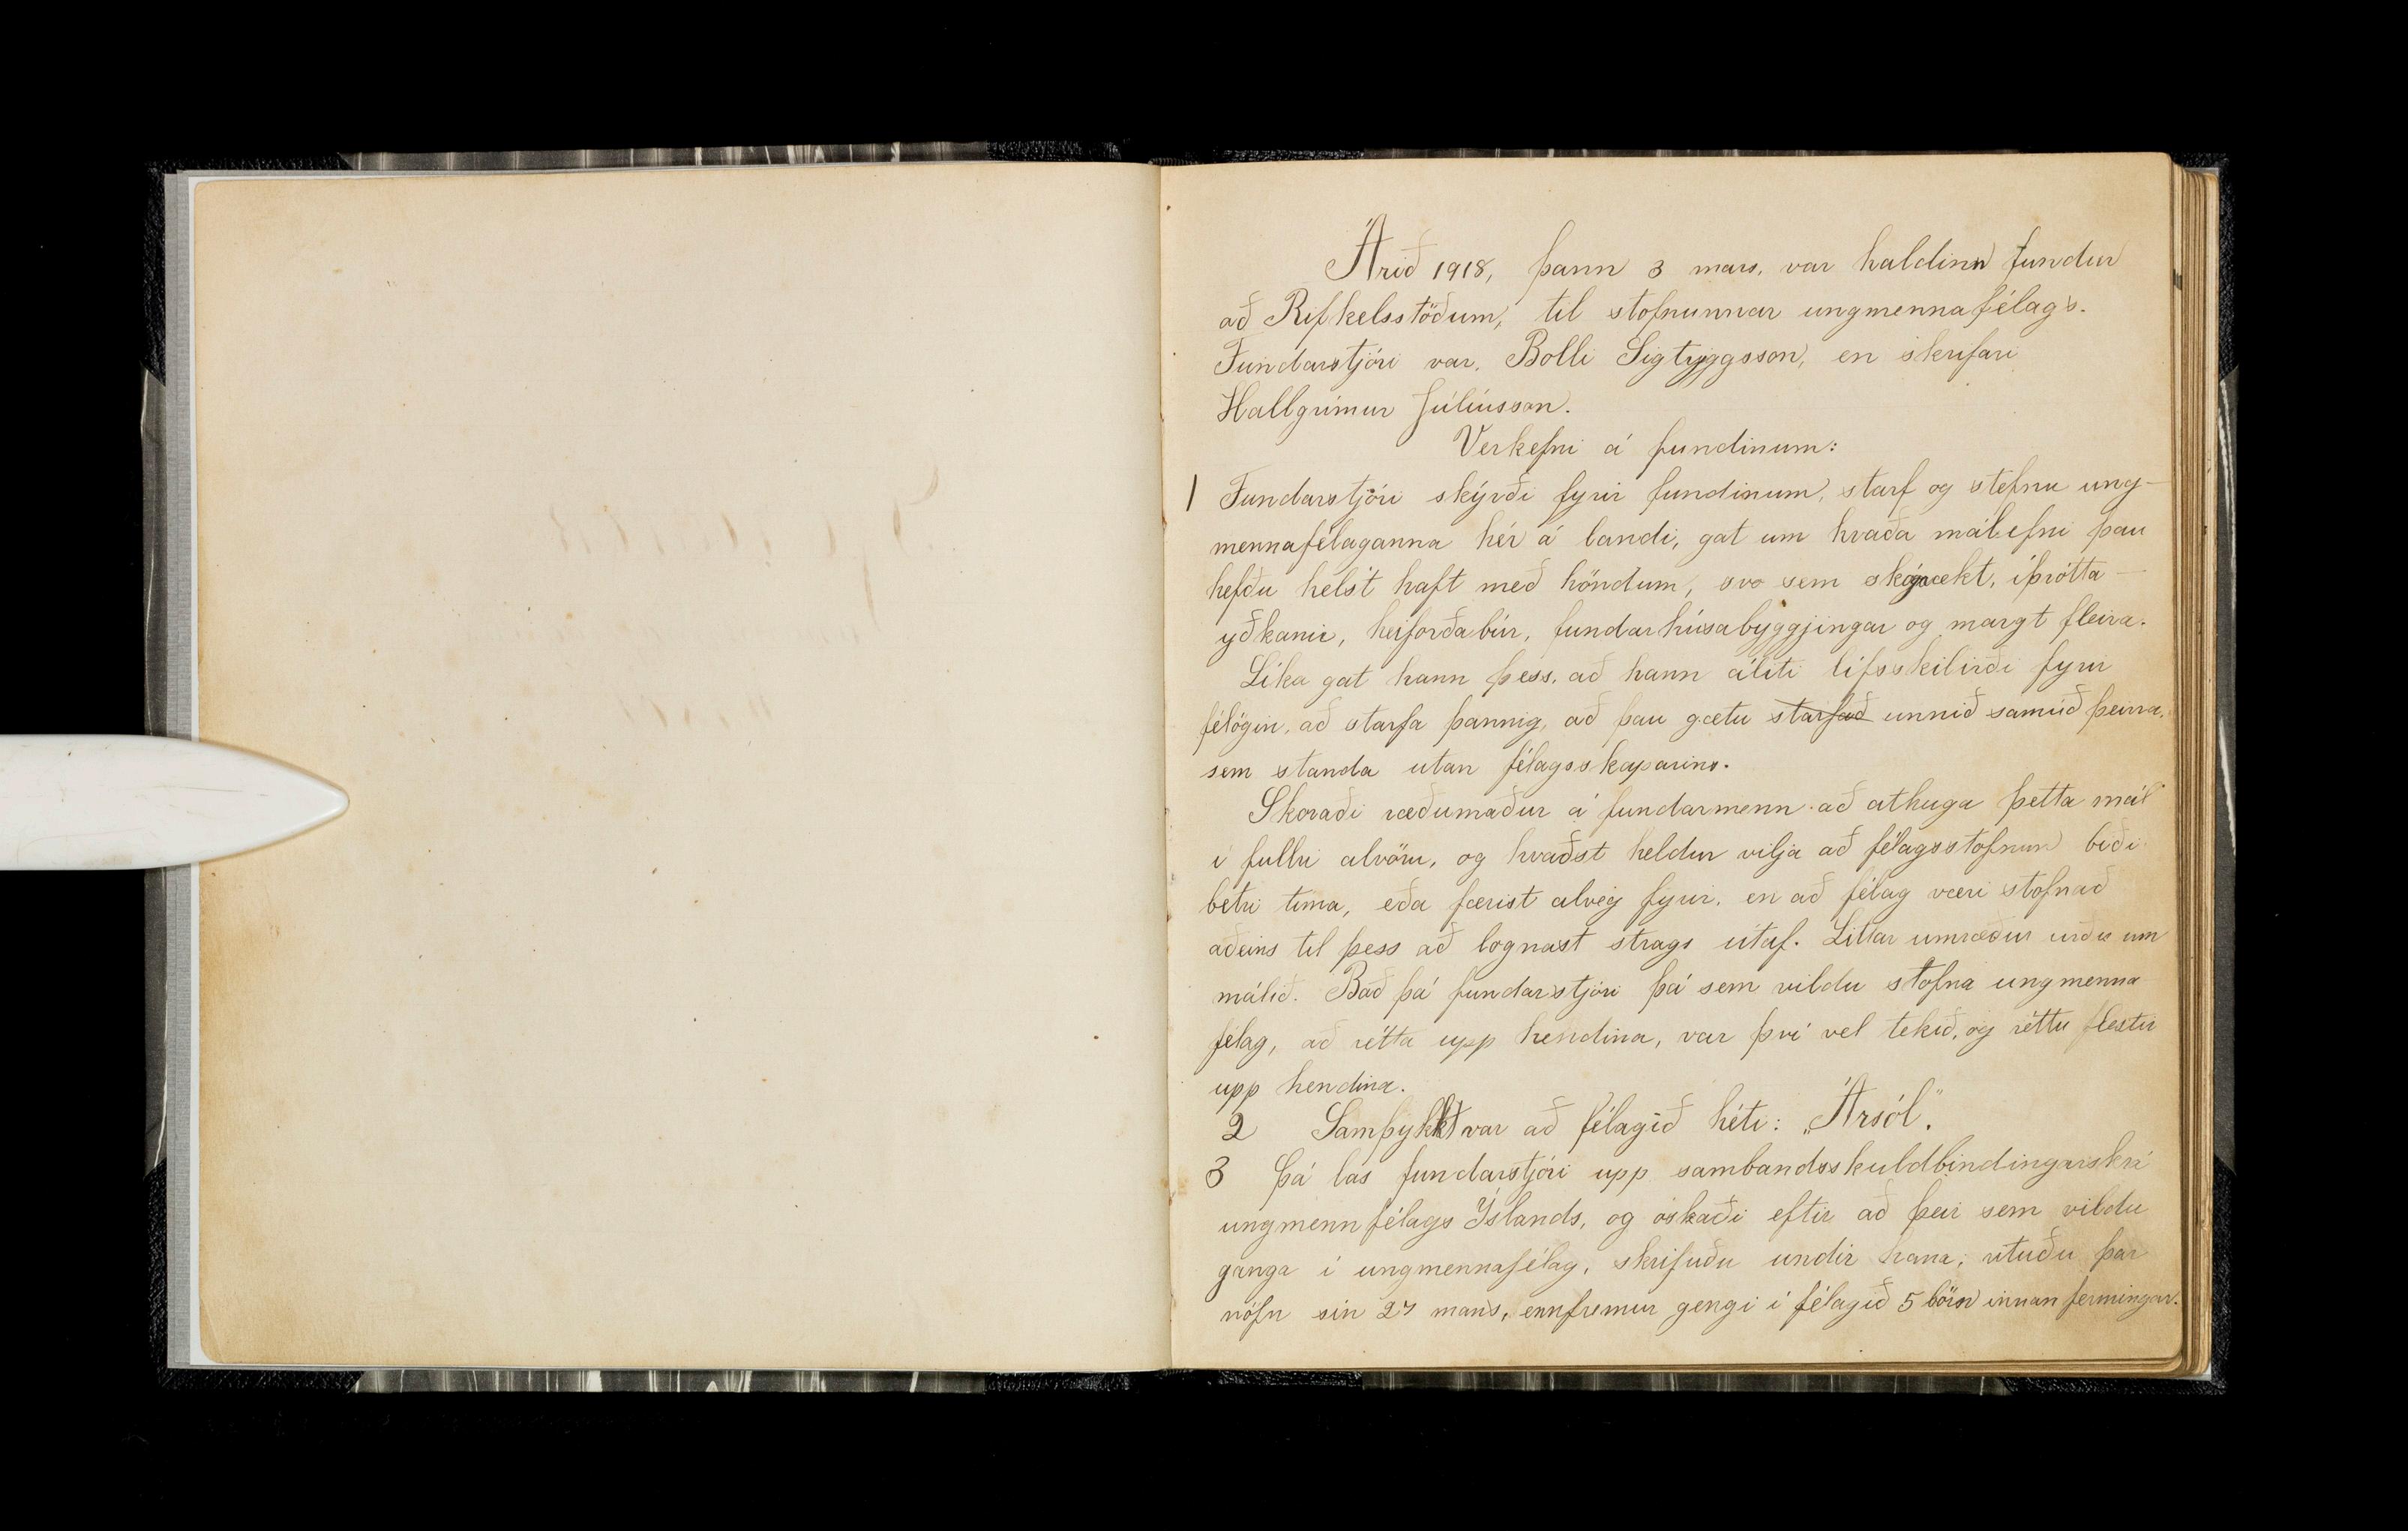 Árið 1918, þann 3 mars, var haldinn fundur
að Rifkelsstöðum, til stofnunnar ungmennafélags.
Fundarstjóri var, Bolli Sigtryggsson, en skrifari
Hallgrímur Júlíusson.
Verkefni á fundinum:
1 Fundarstjóri skýrði fyrir fundinum, starf og stefnu ung-
mennafélaganna hér á landi, gat um hvaða málefni þau
hefðu helst haft með höndum, svo sem skógrækt, íþrótta-
yðkanir, heiforðabúr, fundarhúsabyggjingar og margt fleira.
Líka gat hann þess, að hann áliti lífsskilirði fyrir
félögin, að starfa þannig, að þau gætu starfað unnið samúð þeirra,
sem standa utan félagsskaparins.
Skoraði ræðumaður á fundarmenn að athuga þetta mál
í fullri alvöru, og kvaðst heldur vilja að félagsstofnun biði
betri tíma, eða færist alveg fyrir, en að félag væri stofnað
aðeins til þess að lognast strags útaf. Litlar umræður urðu um
málið. Bað þá fundarstjóri þá sem vildu stofna ungmenna
félag, að rétta upp hendina, var því vel tekið, og réttu flestir
upp hendina.
2 Samþykkt var að félagið héti: „Ársól".
3 Þá las fundarstjóri upp sambandsskuldbindingarskrá
ungmennfélags Íslands, og óskaði eftir að þeir sem vildu
ganga í ungmennafélag, skrifuðu undir hana, rituðu þar
nöfn sín 27 mans, ennfremur gengi í félagið 5 börn innan fermingar.